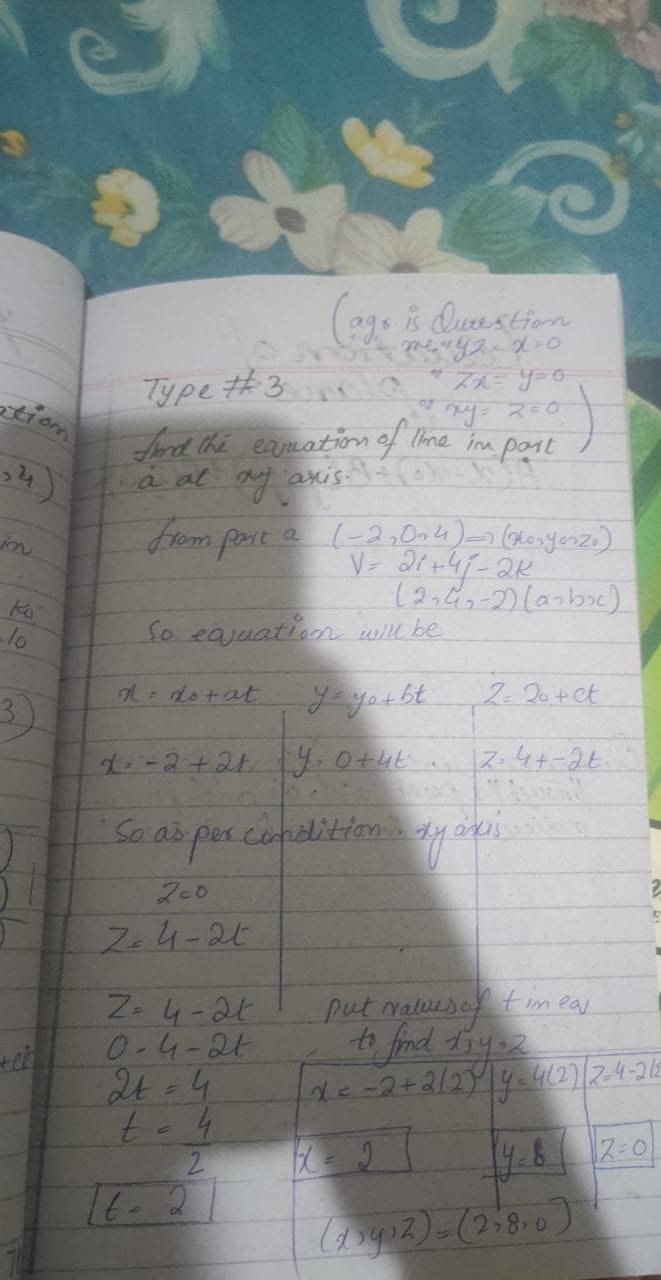 (agr is Question
me "yz = x=0
" zx = y=0
" xy = z=0)
Type # 3
find the equation of line in part
a at xy axis.
from part a (-2,0,4) => (x₀,y₀,z₀)
V = 2i+4j-2k
(2,4,-2)(a,b,c)
So equation will be
x = x₀+at y = y₀+bt z = z₀+ct
x = -2+2t y = 0+4t z = 4+-2t
So as per condition xy axis
z=0
z = 4-2t
z = 4-2t put values of t in eq
0 = 4-2t to find x,y,z
2t = 4 x = -2+2(2) y = 4(2) z = 4-2(2
t = 4
2 x = 2 y = 8 z = 0
t = 2
(x,y,z) = (2,8,0)
ation
,4)
in
3)
+ct